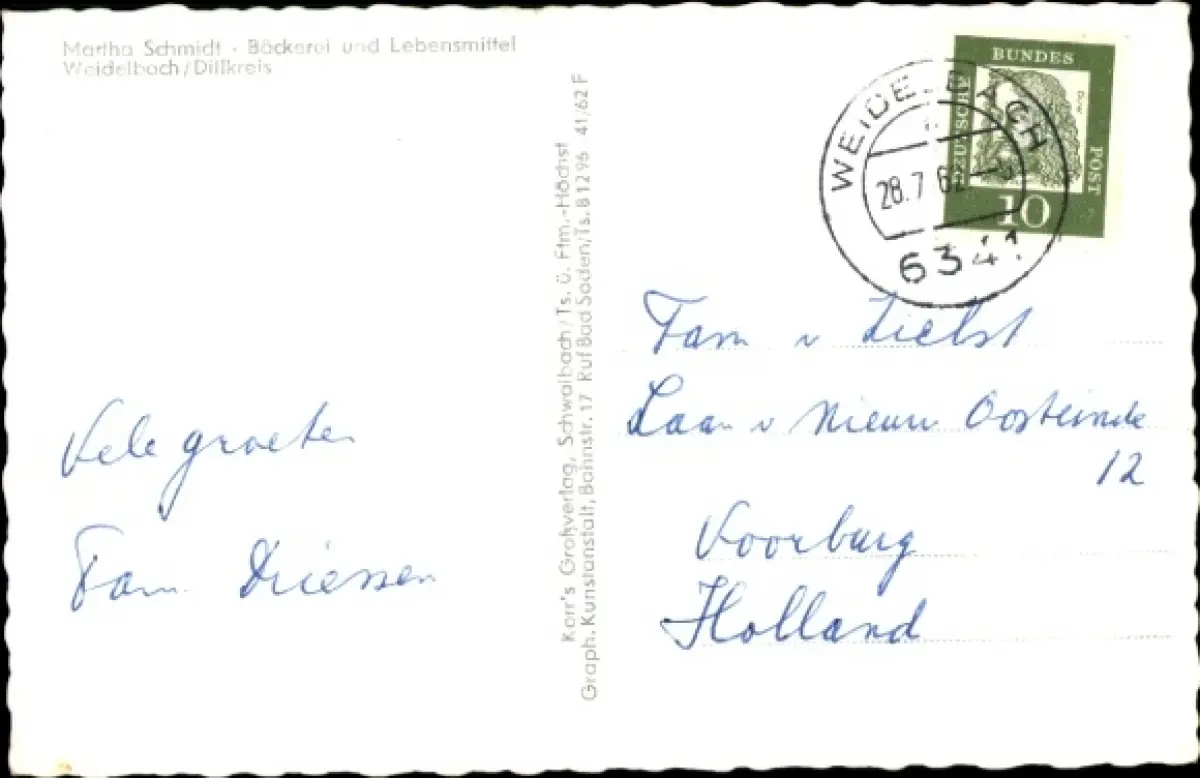 Martha Schmidt · Bäckerei und Lebensmittel
Weidelbach/Dillkreis
Korr's Großverlag, Schwalbach/Ts. ü. Ffm.-Höchst
Graph. Kunstanstalt, Bahnstr. 17 Ruf Bad Soden/Ts. 81296 41/62 F
DEUSCHE
BUNDES
POST
10
WEIDELBACH
28.7.62
6341
Fam v Zielst
Laan v Nieuw Oosteinde
12
Voorburg
Holland
Vele groeten
Fam. Driessen